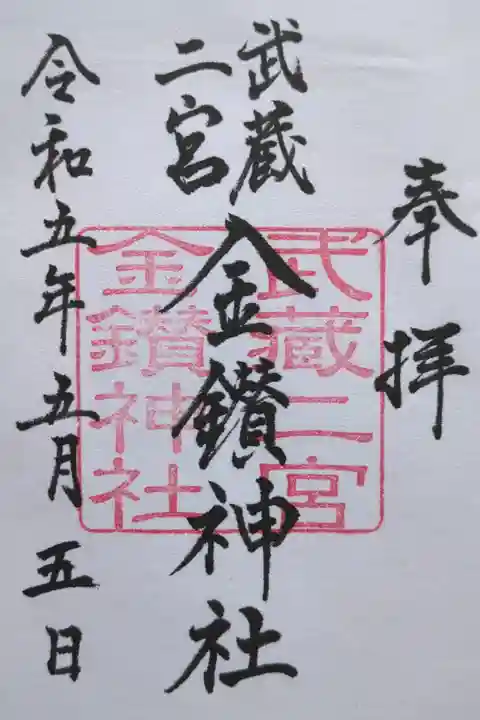 奉拝
武蔵
二宮
金鑚神社
武蔵二宮
金鑚神社
令和五年五月五日